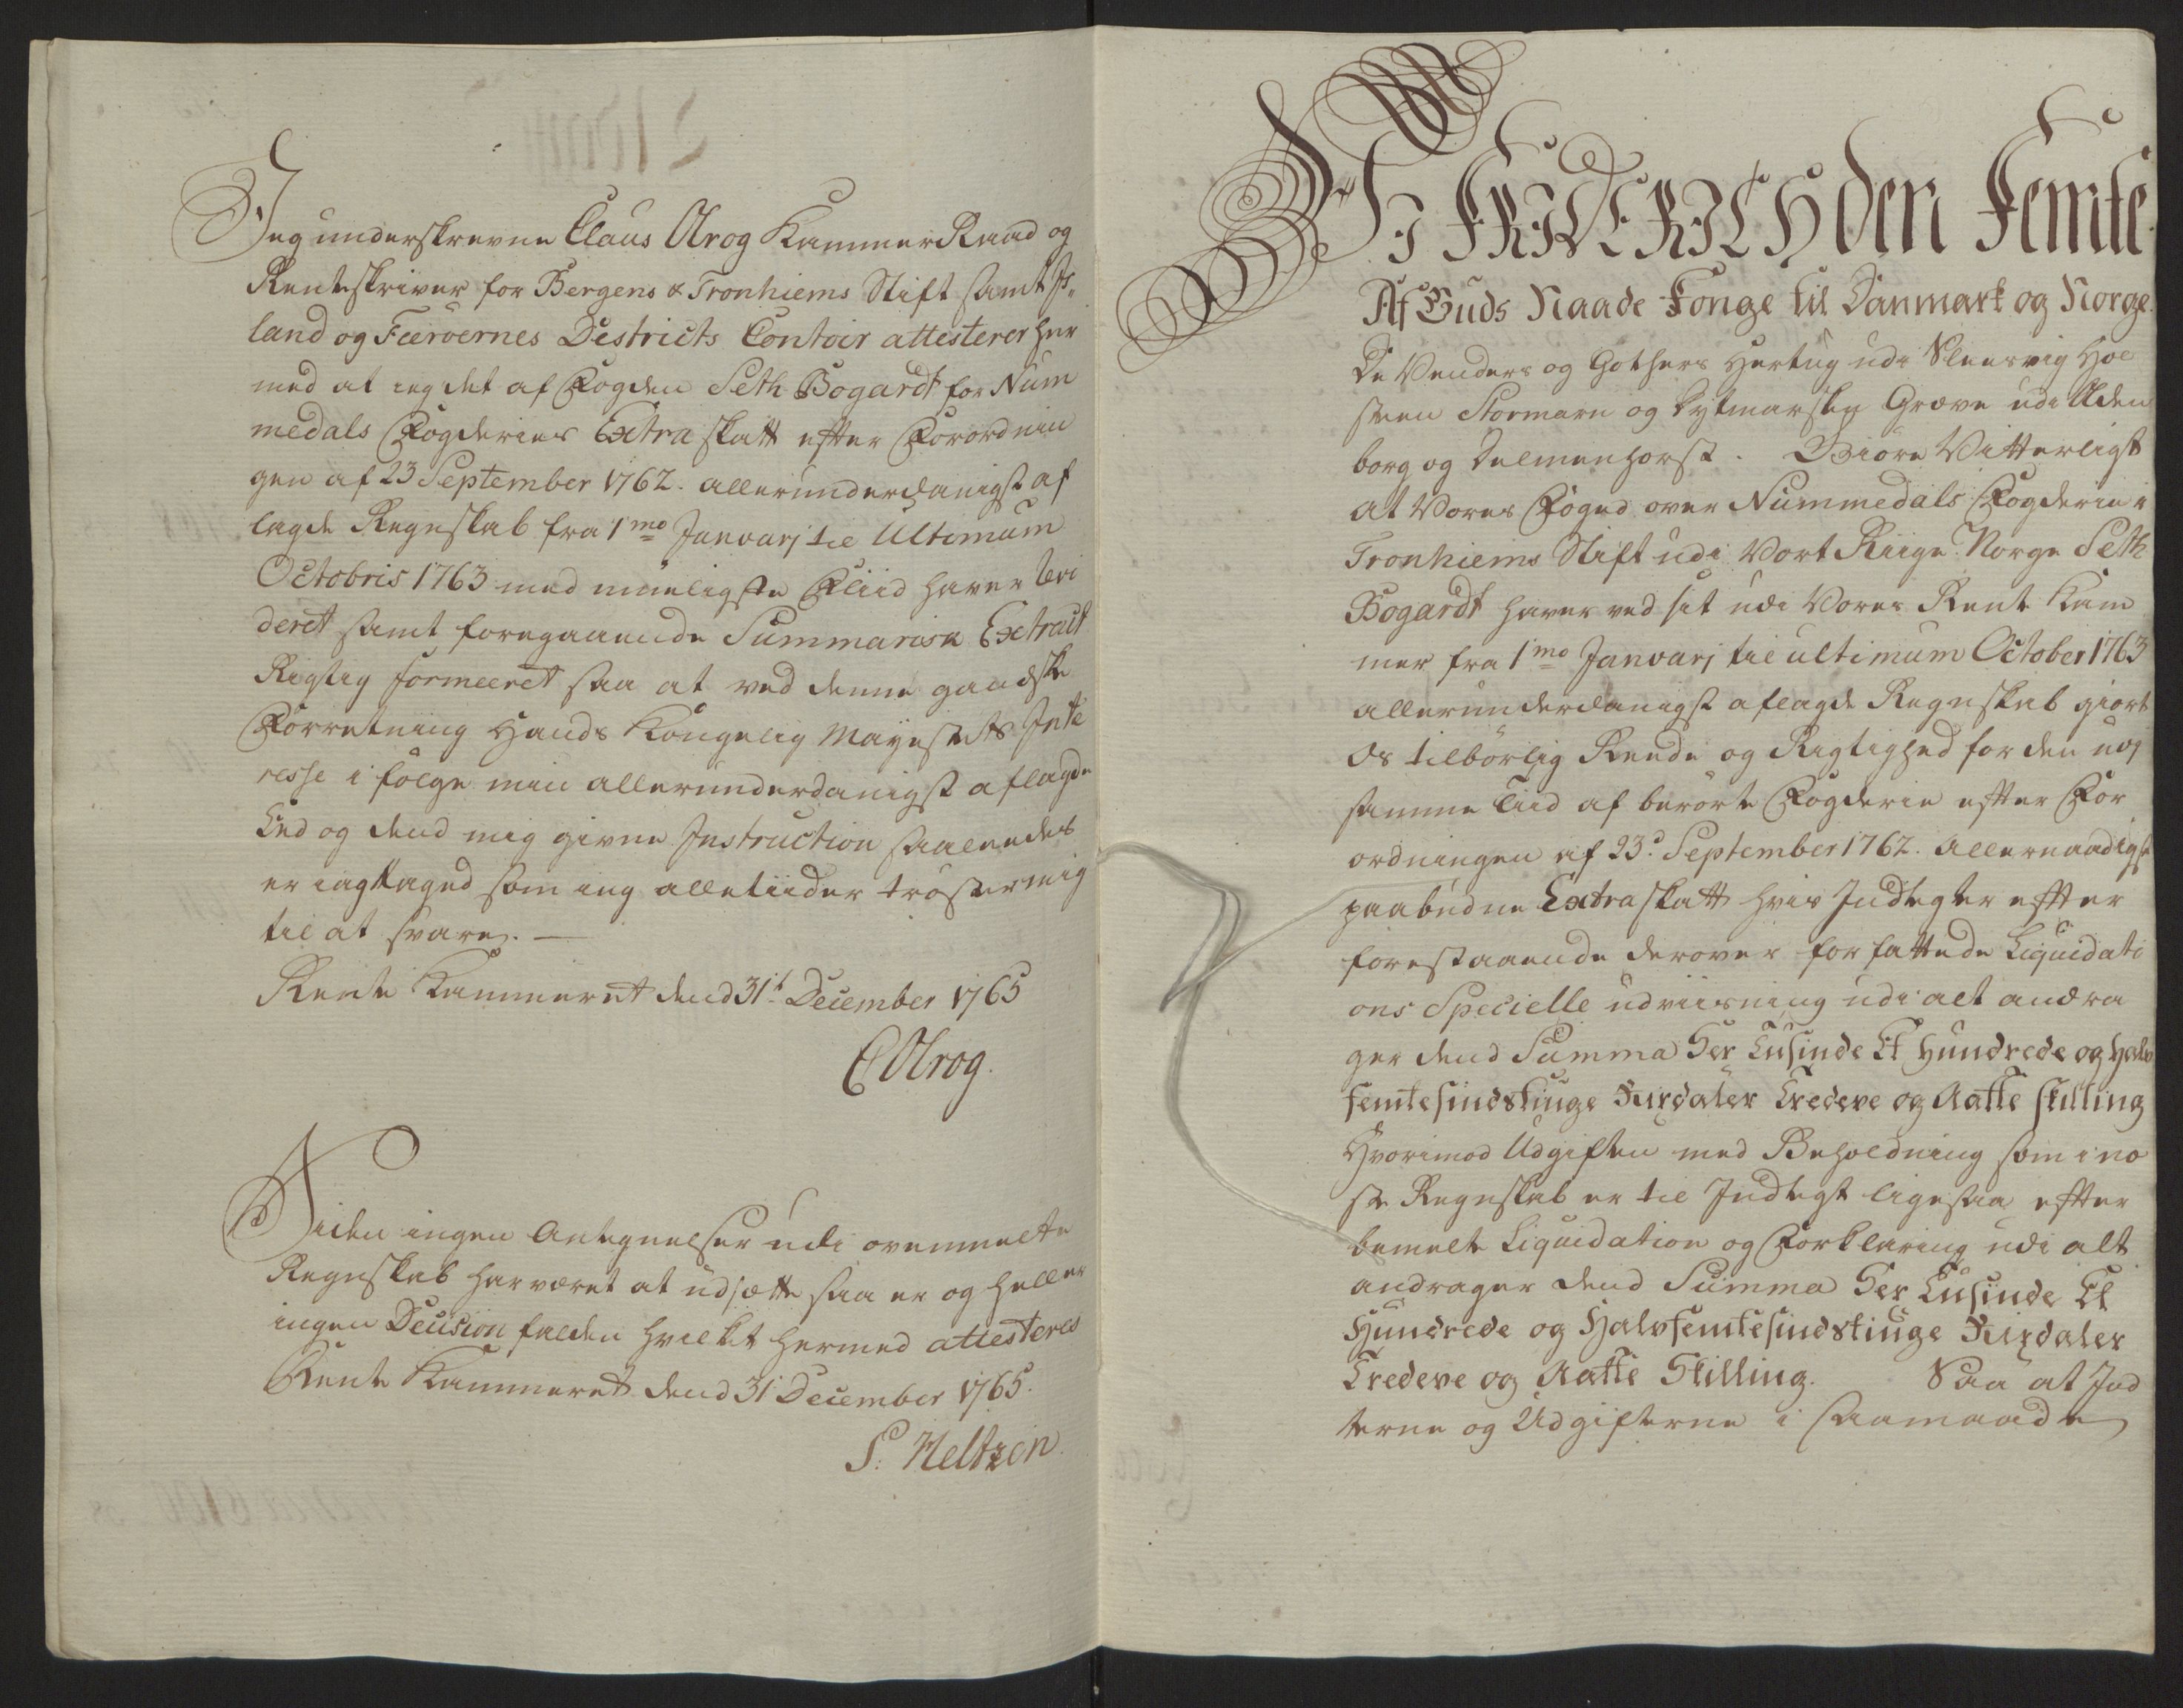 Jeg underskrevne Claus Olrog Kammer Raad og
Renteskriver for Bergens & Tronhiems Stift samt Is„
land og Færoernes Districts Contoir attesterer her
med at ieg det af Fogden Seth Bogardt for Num
medals Fogderies Extra skatt efter Forordnin
gen af 23 September 1762. allerunderdanigst af
lagde Regnskab fra 1mo Januarj til Ultimum
Octobris 1763 med mueligste Fliid haver levi
deret samt foregaaende Summarisk Extract
Rigtig formeeret saa at ved denne gandske
Forretning Hands Kongelig Mayestets Inte
resse i følge min allerunderdanigst aflagde
Eed og dend mig givne Instruction saaleedes
er iagttaged som ieg alletiider trøster mig
til at svare. —
Rente Kammeret dend 31t December 1765
C Olrog.
Siden ingen Antegnelser udi ovenmelte
Regnskab har været at udsætte saa er og heller
ingen Decision falden hvilket hermed attesteres
Rente Kammeret dend 31 December 1765.
S: Heltzen
Wi FRIDERICH den Femte
Af Guds Naade Konge til Danmark og Norge
De Venders og Gothers Hertug udi Sleesvig Hol
steen Stormarn og Dytmarsken Greve udi Olden
borg og Delmenhorst. Giøre Vitterligt
at Vores Foged over Nummedals Fogderie i
Tronhiems Stift udi Vort Riige Norge Seth
Bogardt haver ved sit udi Vores Rente Kam
mer fra 1mo Januarj til ultimum October 1763
allerunderdanigst aflagde Regnskab giort
Os tilbørlig Reede og Rigtighed for den udj
samme Tiid af berørte Fogderie efter For
ordningen af 23d September 1762. Allernaadigst
paabudne Extra skatt hvis Indtegter efter
forestaaende derover forfattede Liquidati
ons Specielle udviisning udi alt andra
ger dend Summa Sex Tusinde Et Hundrede og Halv
femtesindstiuge Rixdaler Tredeve og Aatte skilling
Hvorimod Udgiften med Beholdning som i næ
ste Regnskab er til Indtegt ligesaa efter
bemelte Liquidation og Forklaring udi alt
andrager dend Summa Sex Tusinde Et
Hundrede og Halvfemtesindstiuge Rixdaler
Tredeve og Aatte Skilling. Saa at Ind
terne og Udgifterne i saamaade